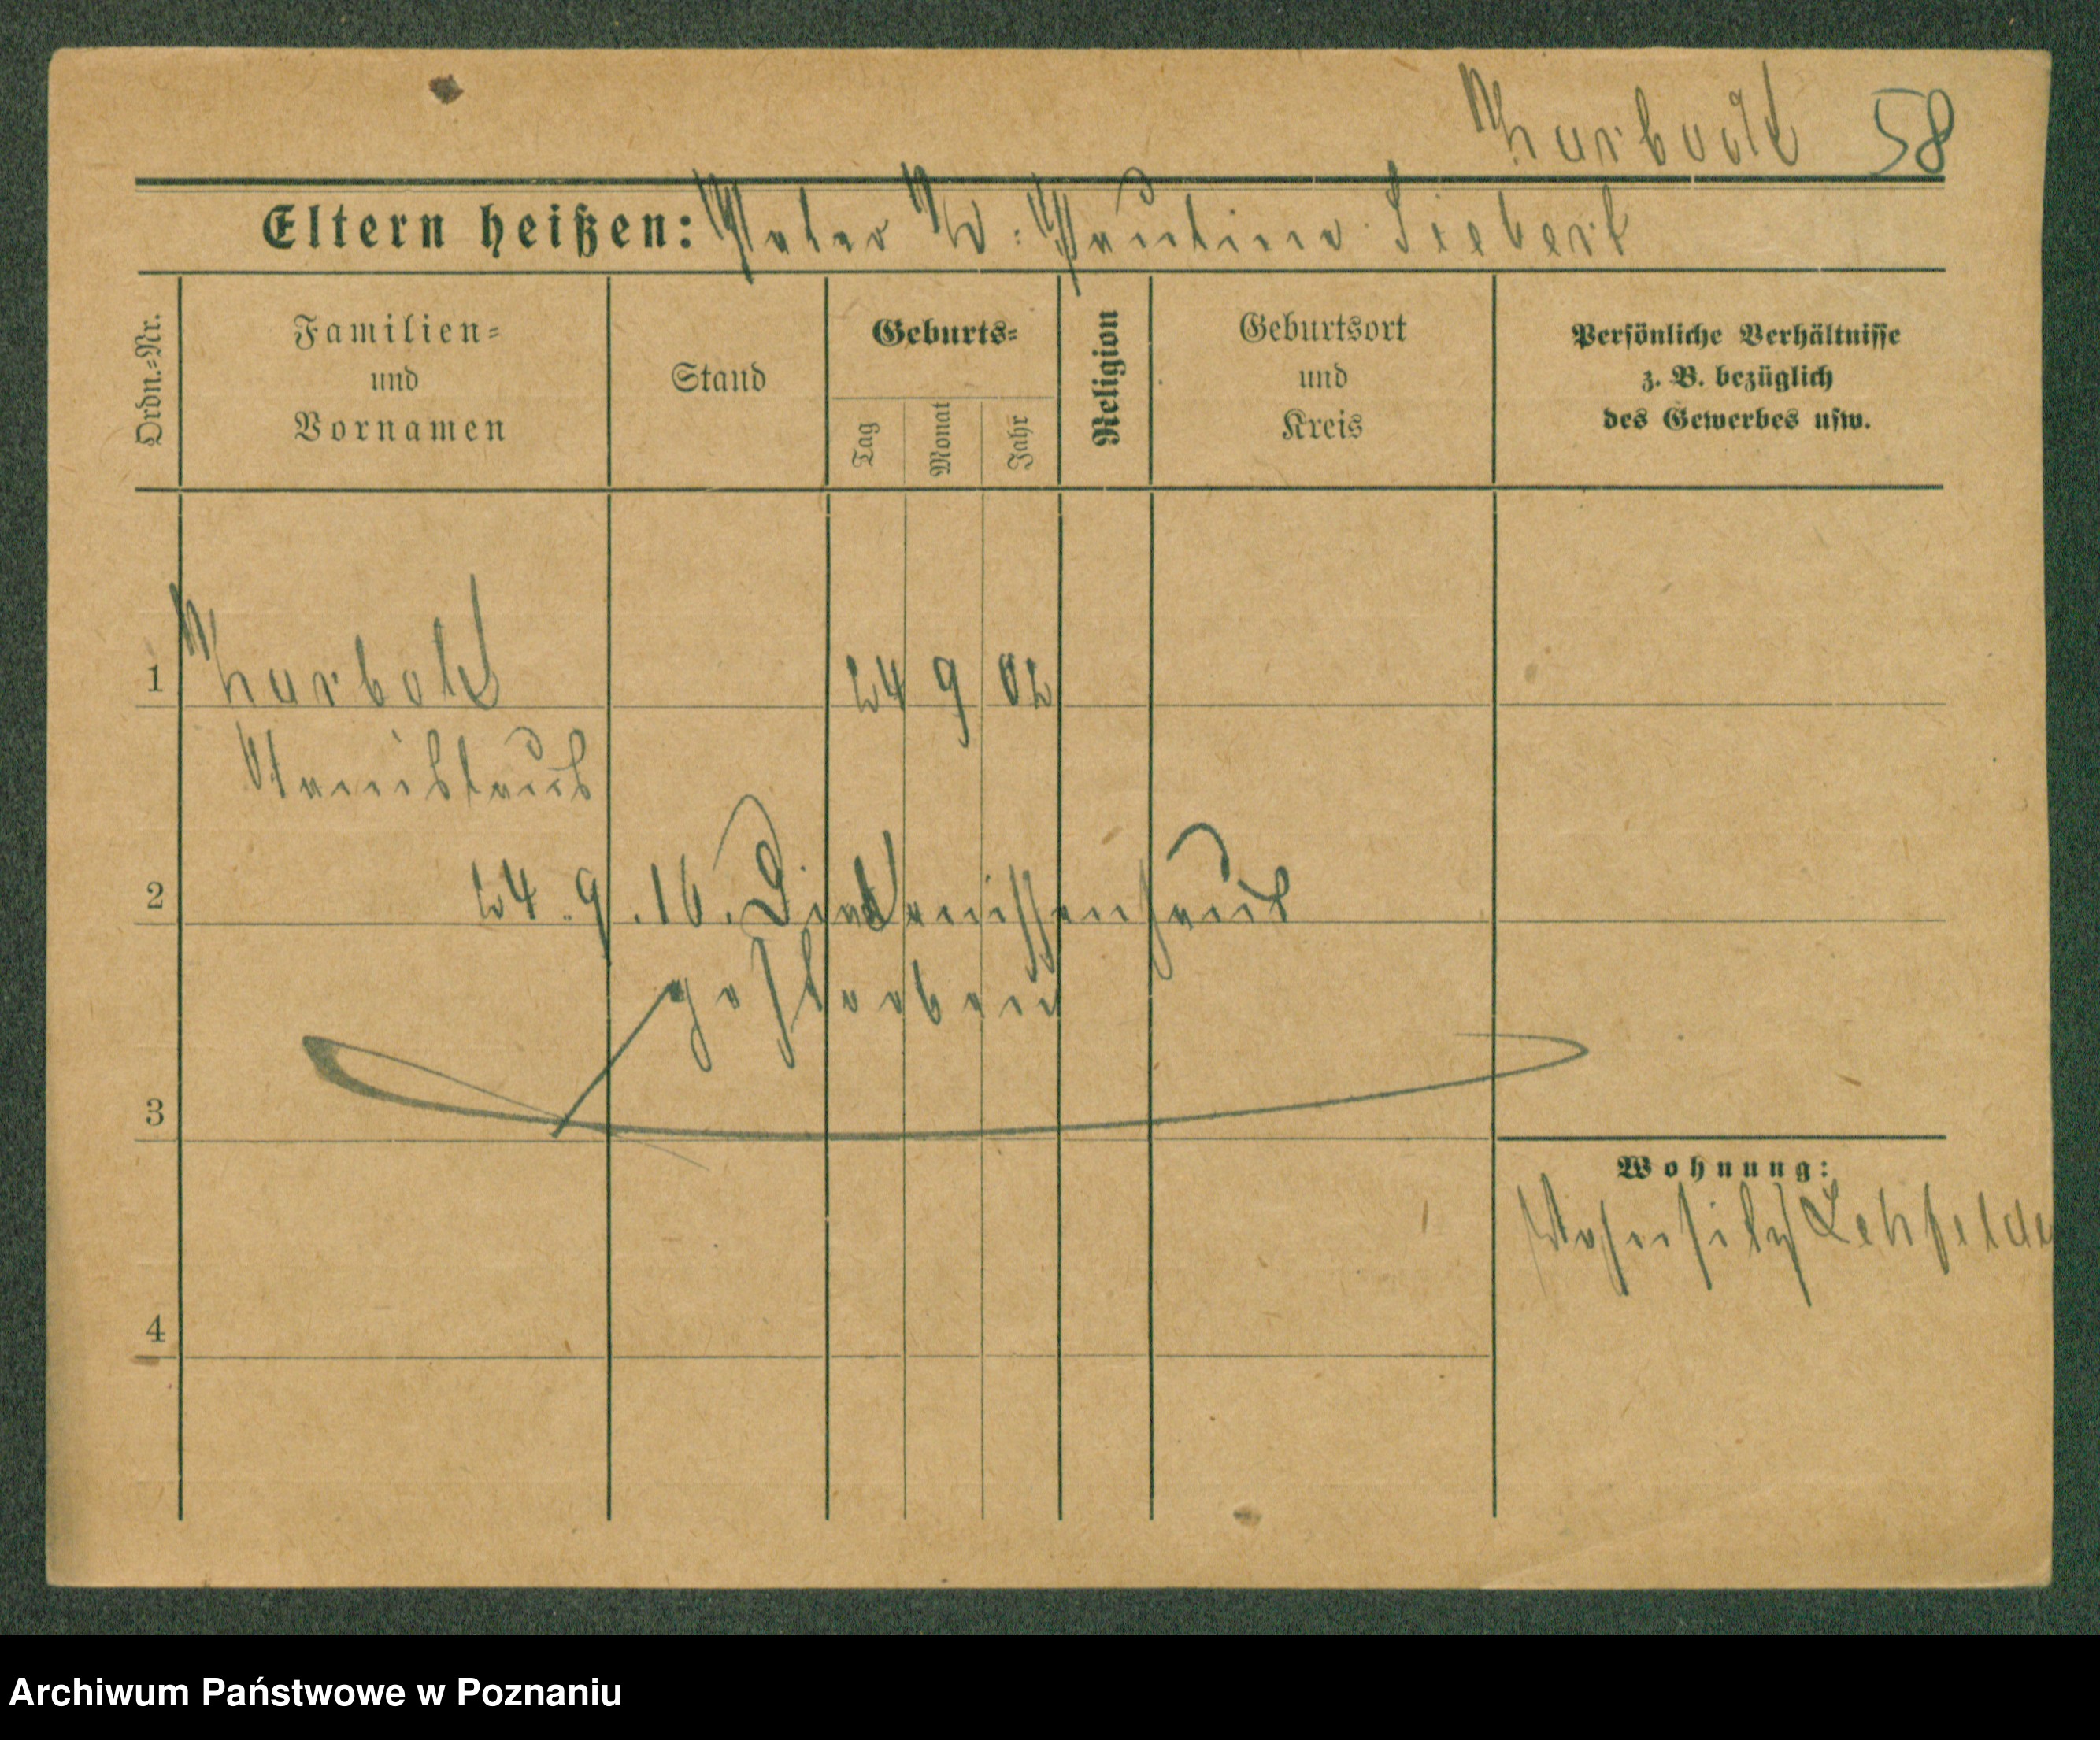 58
Eltern heißen: Peter u. Pauline Siebert
Ordn.-Nr.
Familien-
und
Vornamen
Stand
Geburts-
Tag
Monat
Jahr
Religion
Geburtsort
und
Kreis
Persönliche Verhältnisse
z. B. bezüglich
des Gewerbes usw.
1
24 9 02
Stanislaus
2
24.9.16. Diakonissenhaus
gestorben
3
Wohnung:
Wohnsitz Lehfelde
4
Archiwum Państwowe w Poznaniu